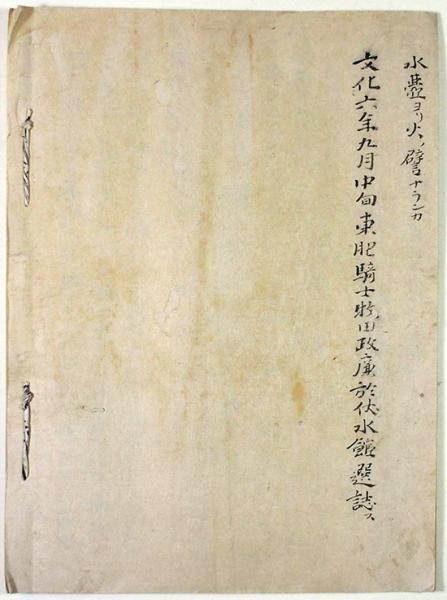 水壺ヨリ火ノ譬ナランカ
文化六年九月中旬東肥騎士牧田政廉於伏水館選誌ス